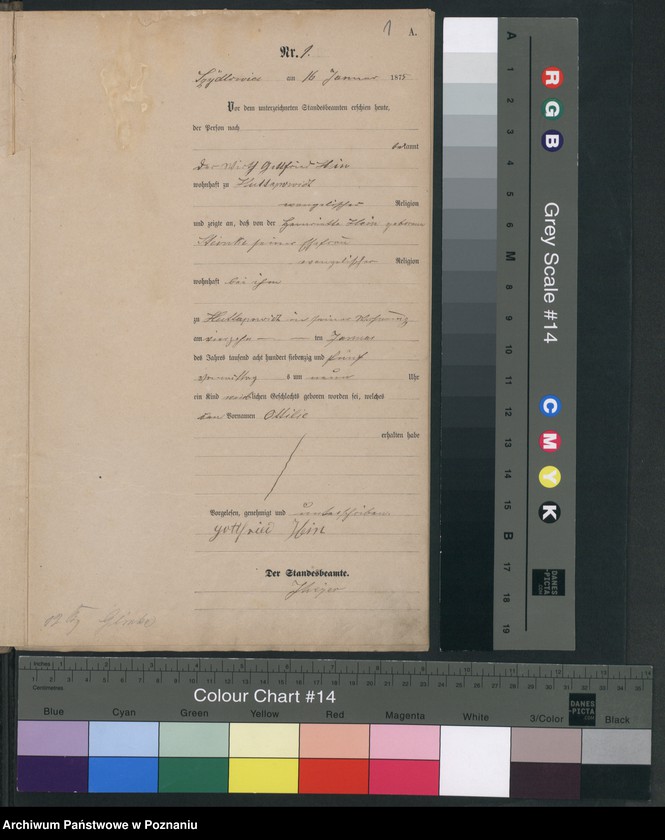 1 A.
Nr. 1.
am 16 Januar 1875
Vor dem unterzeichneten Standesbeamten erschien heute,
der Person nach
bekannt
Der Wirth Gottfried Hein
wohnhaft zu
evangelischer Religion
und zeigte an, daß von der Henriette Hein geborene
seiner Ehefrau
evangelischer Religion
wohnhaft bei ihm
zu in seiner Wohnung
am ten Januar
des Jahres tausend acht hundert siebenzig und fünf
vormittags um neun Uhr
ein Kind weiblichen Geschlechts geboren worden sei, welches
den Vornamen Ottilie
erhalten habe
Vorgelesen, genehmigt und unterschrieben
gottfried Hein
Der Standesbeamte.
A 1 2 3 4 5 6 M 8 9 10 11 12 13 14 15 B 17 18 19
R G B
Grey Scale #14
C M Y K
DANES-PICTA.COM
inches 1 2 3 4 5 6 7 8
Centimetres 1 2 3 4 5 6 7 8 9 10 11 12 13 14 15 16 17 18 19 20 21 22 23 24 25 26 27 28 29 30 31 32 33 34 35
Colour Chart #14
DANES-PICTA.COM
Blue Cyan Green Yellow Red Magenta White 3/Color Black
Archiwum Państwowe w Poznaniu